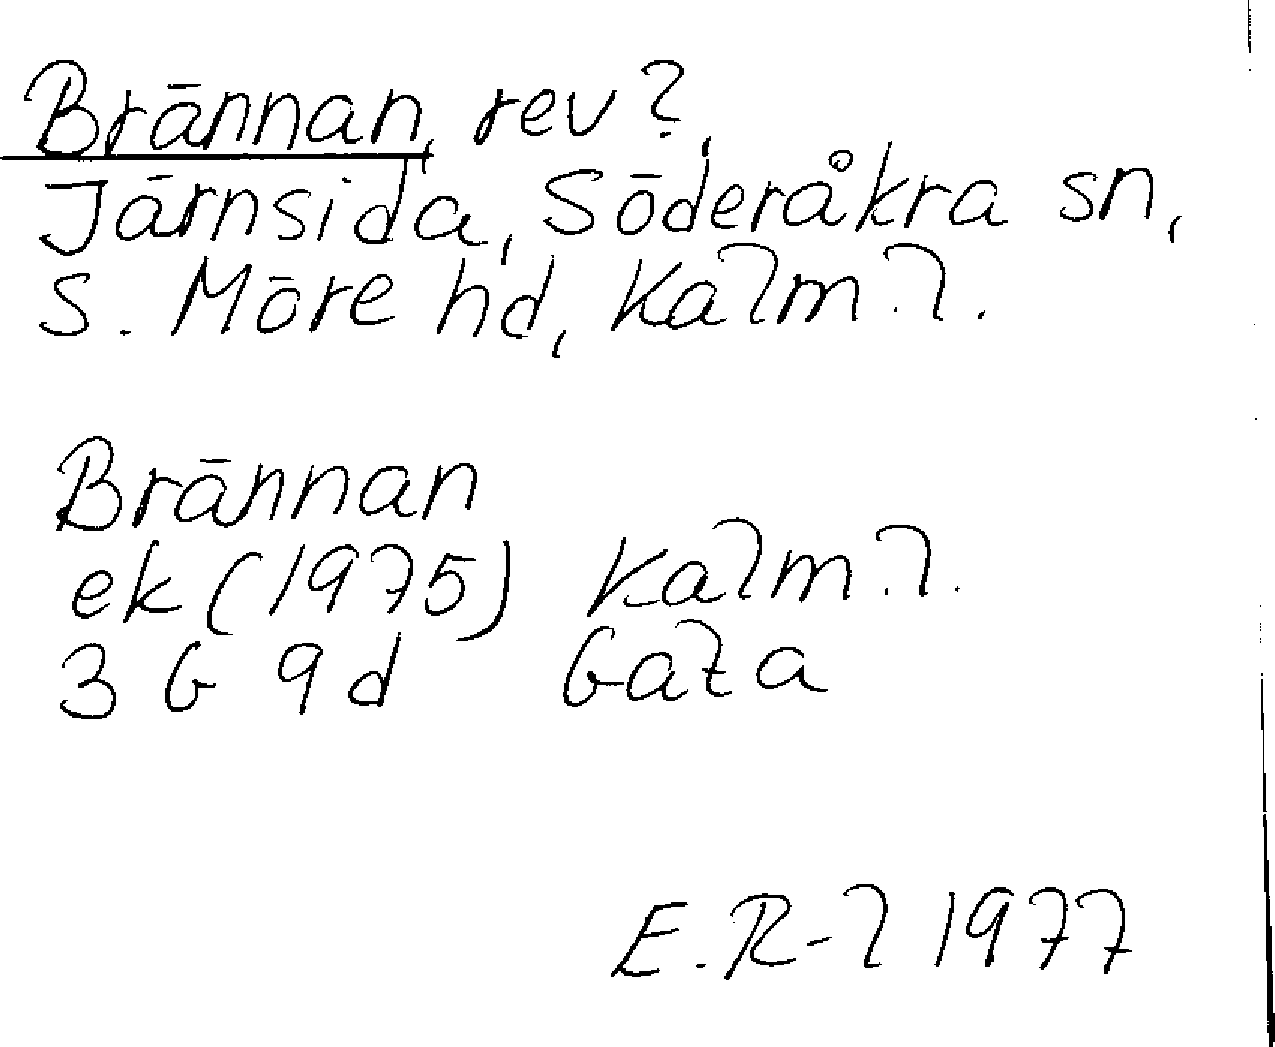 Brännan, rev?,
Järnsida, Söderåkra sn,
S. Möre hd, Kalm. l.
Brännan
ek (1975) Kalm. l.
3 G 9 d Gata
E.R-l 1977